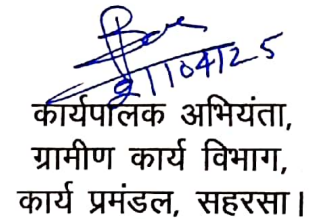 21104125
कार्यपालक अभियंता,
ग्रामीण कार्य विभाग,
कार्य प्रमंडल, सहरसा।